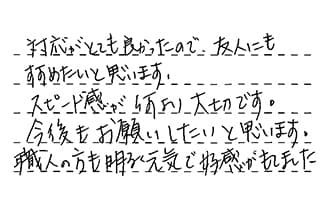 対応がとても良かったので、友人にも
すすめたいと思います。
スピード感が何より大切です。
今後もお願いしたいと思います。
職人の方も明るく元気で好感がもてました